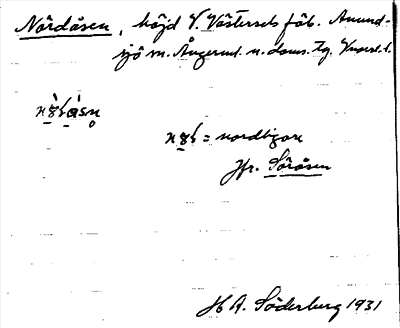 Nördåsen, höjd V. Västersels fäb. Anund-
sjö sn. Ångerml. n. doms. tg.
= nordligare
Jfr. Söråsen
H A. Söderberg 1931